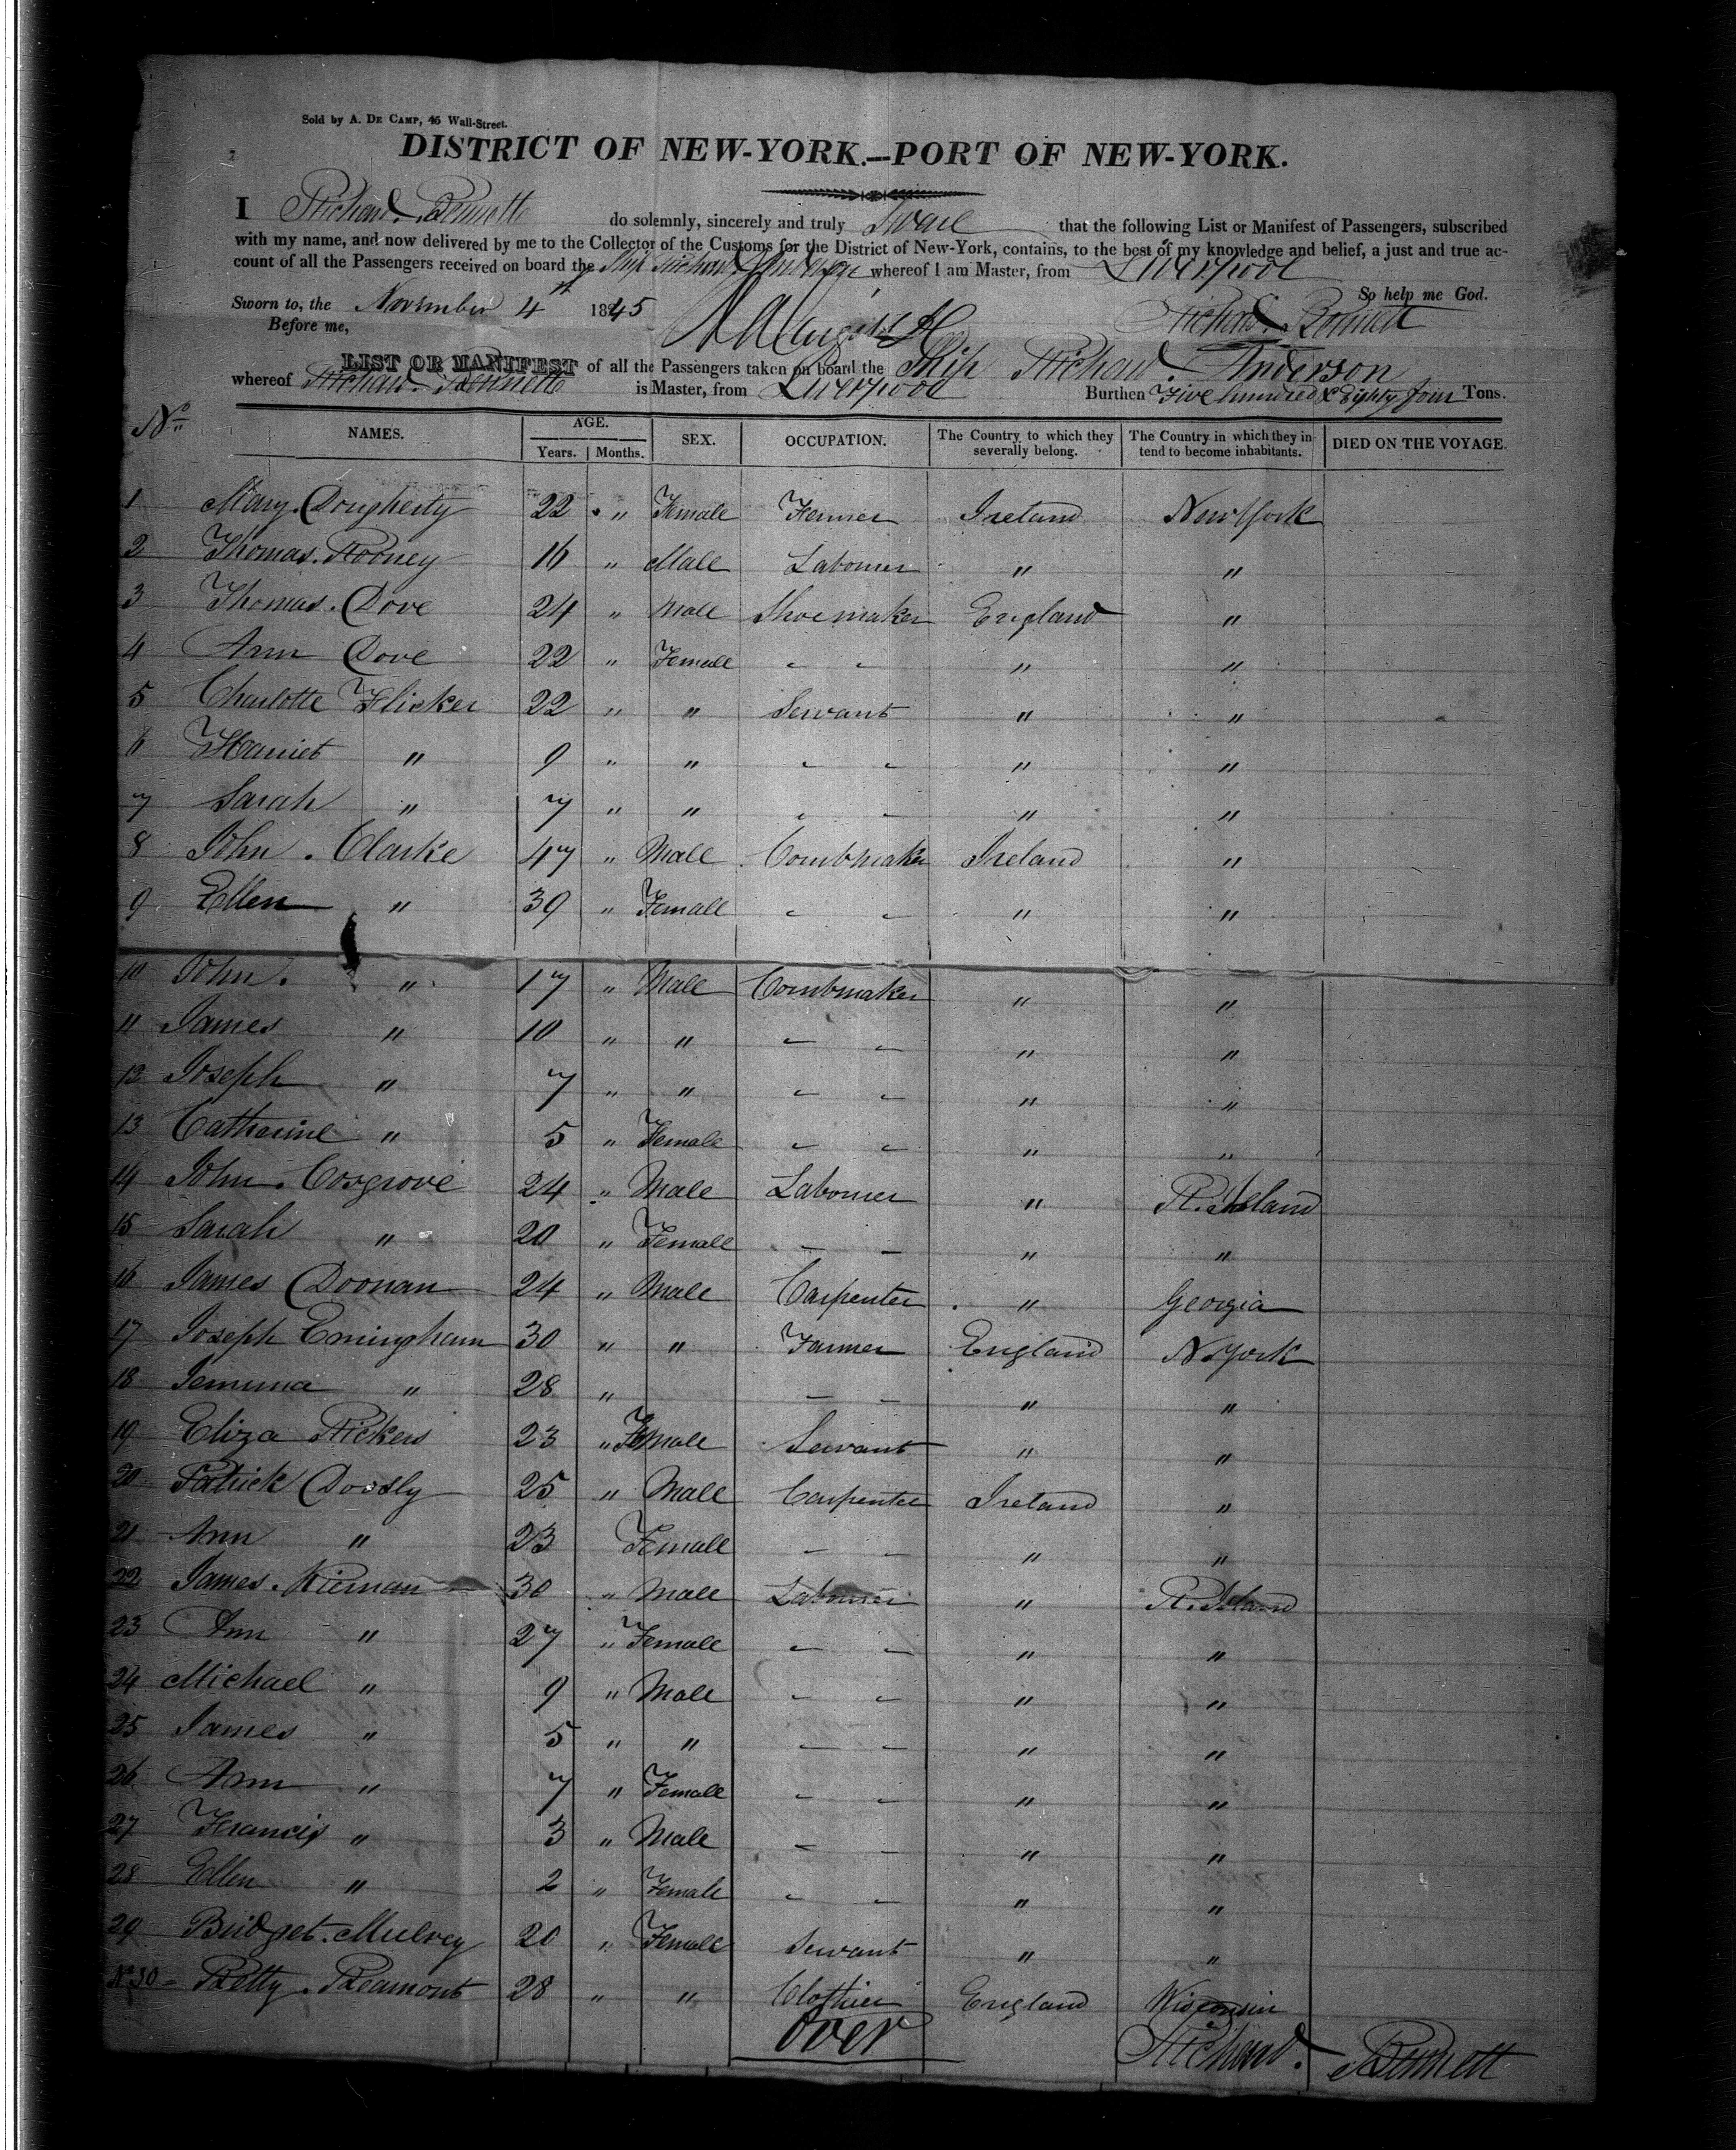 Sold by A. DE CAMP, 45 Wall-Street.
DISTRICT OF NEW-YORK.—PORT OF NEW-YORK.
I Richard. Bennett do solemnly, sincerely and truly Swear that the following List or Manifest of Passengers, subscribed
with my name, and now delivered by me to the Collector of the Customs for the District of New-York, contains, to the best of my knowledge and belief, a just and true ac-
count of all the Passengers received on board the Ship Richard Anderson whereof I am Master, from Liverpool
So help me God.
Sworn to, the November 4th 1845
Before me, Richard. Bennett
LIST OR MANIFEST of all the Passengers taken on board the Ship Richard. Anderson
whereof Richard. Bennett is Master, from Liverpool Burthen Five hundred & Eighty four Tons.
No NAMES. AGE. Years. Months. SEX. OCCUPATION. The Country to which they severally belong. The Country in which they intend to become inhabitants. DIED ON THE VOYAGE.
1 Mary. Dougherty 22 " Female Ireland New York
2 Thomas. Rooney 16 " Male Labourer " "
3 Thomas. Dove 24 " Male Shoemaker England "
4 Ann Dove 22 " Female - - " "
5 Charlotte Flicker 22 " " Servant " "
6 Harriet " 9 " " - - " "
7 Sarah " 7 " " - - " "
8 John. Clarke 47 " Male Combmaker Ireland "
9 Ellen " 39 " Female - - " "
10 John. " 17 " Male Combmaker " "
11 James " 10 " " - - " "
12 Joseph " 7 " " - - " "
13 Catherine " 5 " Female - - " "
14 John. Cosgrove 24 " Male Labourer " R. Island
15 Sarah " 20 " Female - - " "
16 James Doonan 24 " Male Carpenter " Georgia
17 Joseph Emingham 30 " " Farmer England N York
18 Jemima " 28 " - - " "
19 Eliza Rickers 23 " Female Servant " "
20 Patrick Doosly 25 " Male Carpenter Ireland "
21 Ann " 23 Female - - " "
22 James. Kiernan 30 " Male Labourer " R. Island
23 Ann " 27 " Female - - " "
24 Michael " 9 " Male - - " "
25 James " 5 " " - - " "
26 Ann " 7 " Female - - " "
27 Francis " 3 " Male - - " "
28 Ellen " 2 " Female - - " "
29 Bridget. Mulvey 20 " Female Servant " "
No 30 - Betty. Beamont 28 " " Clothier England Wisconsin
Over
Richard. Bennett